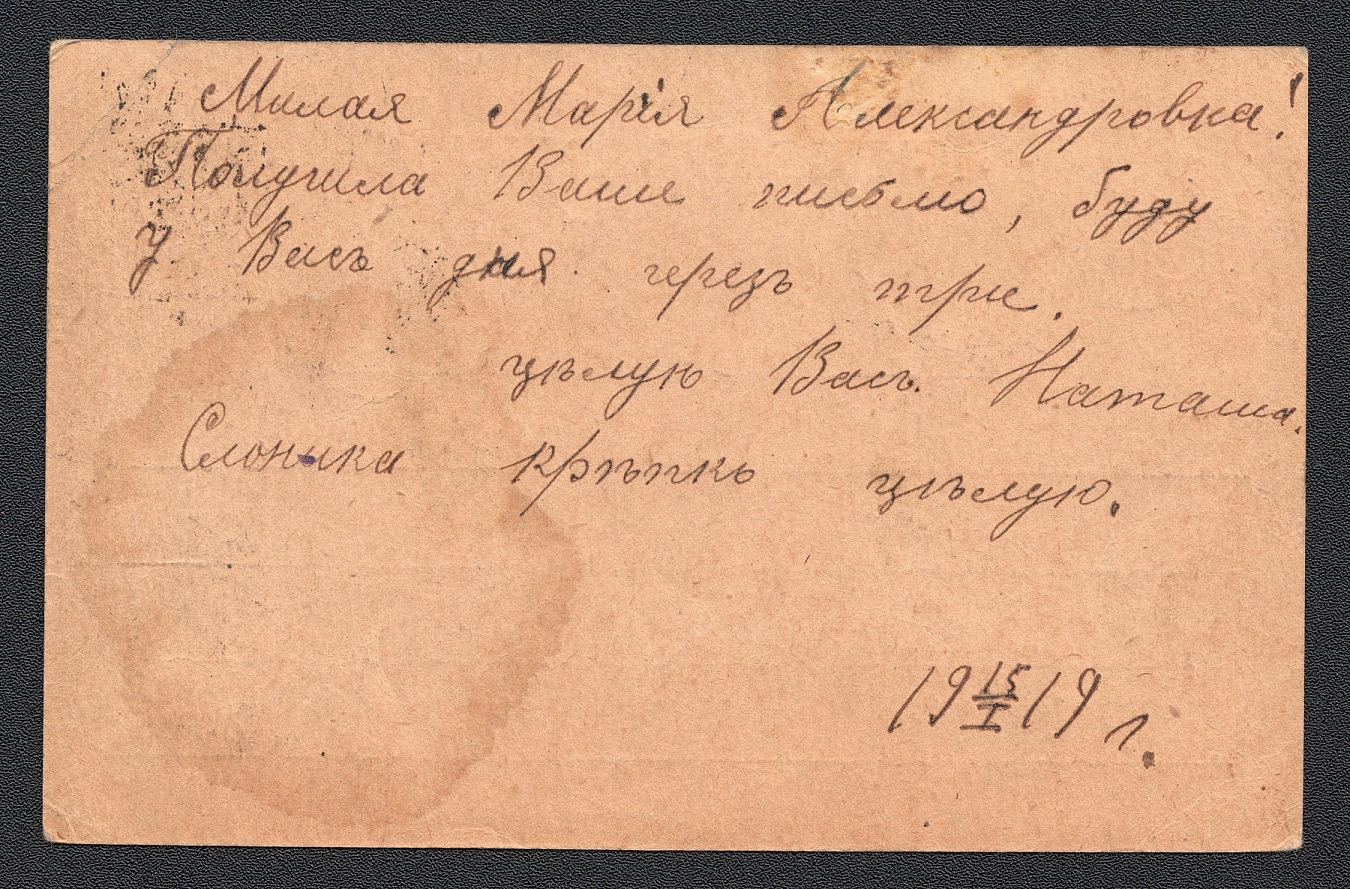 Милая Марія Александровна!
Получила Ваше письмо, буду
у Васъ дня черезъ три.
цѣлую Васъ. Наташа.
Слоника крѣпко цѣлую.
19 15/I 19 г.